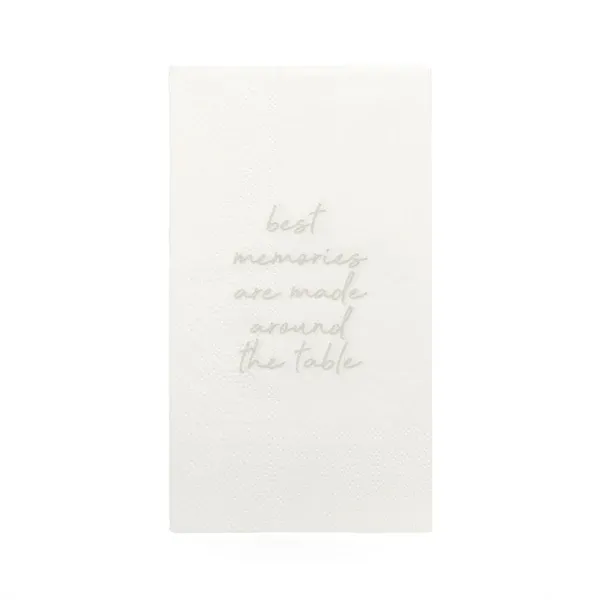 best
memories
are made
around
the table